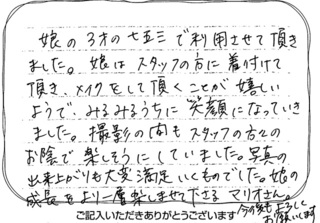 娘の3才の七五三で利用させて頂き
ました。娘はスタッフの方に着付けて
頂き、メイクをして頂くことが嬉しい
ようで、みるみるうちに笑顔になっていき
ました。撮影の間もスタッフの方々の
お陰で楽しそうにしていました。写真の
出来上がりも大変満足いくものでした。娘の
成長をより一層楽しませて下さるマリオさん。
今後もよろしく
お願いします
ご記入いただきありがとうございます